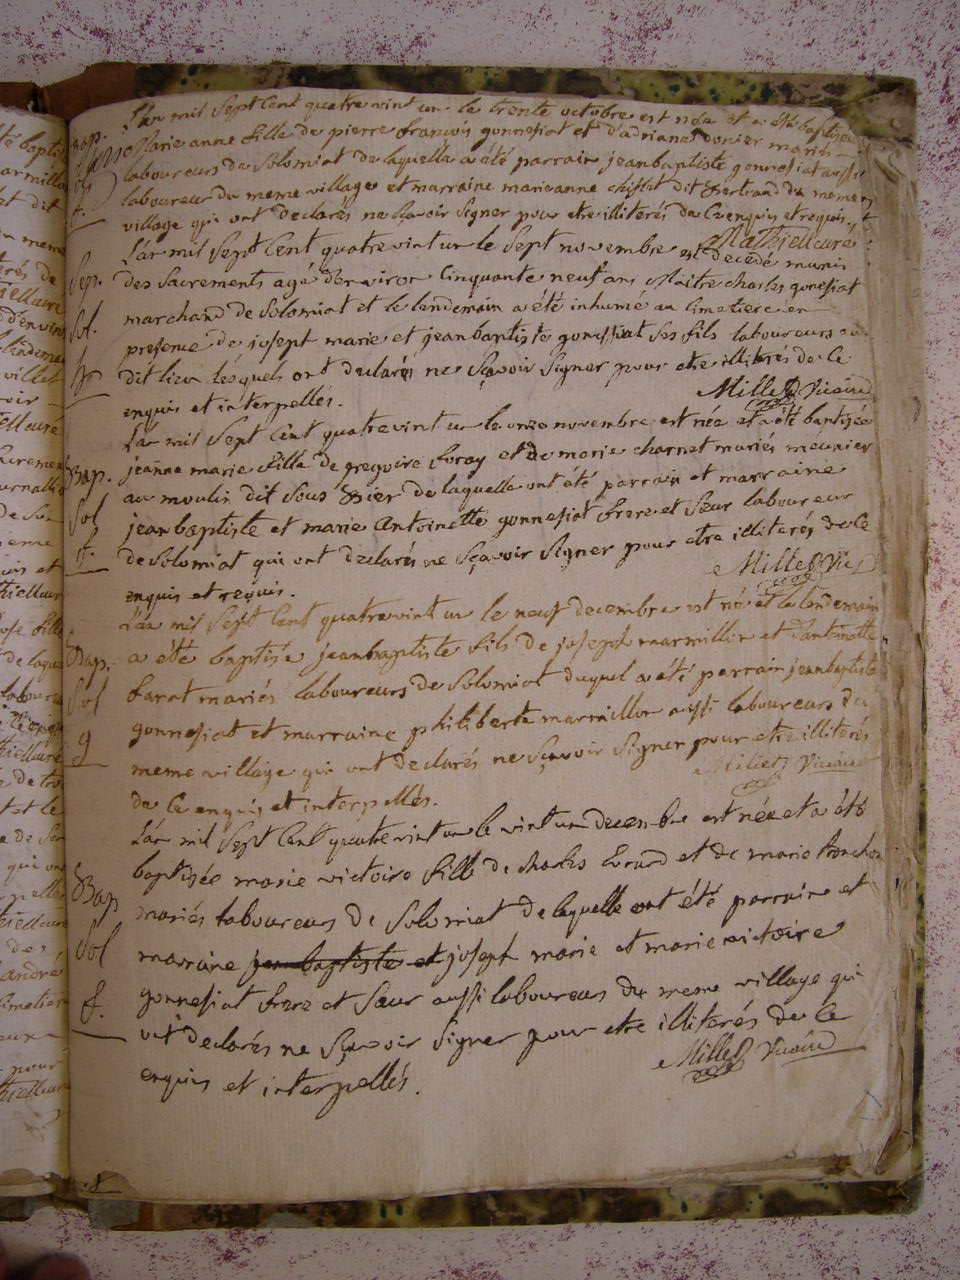 L'an mil Sept Cent quatre vint un le trente octobre est née et a été baptisée
Bap. Marie anne fille de pierre françois gonnesiat et d'adriane donier mariés
Sol laboureurs de Solomiat de laquelle a été parrain jeanbaptiste gonnesiat aussi
f. laboureur du meme village et marraine marieanne chiflet dit Bertrand du meme
village qui ont declarés ne sçavoir signer pour etre illiterés de Ce enquis et requis.
Mathieu Curé
L'an mil Sept Cent quatrevint un le Sept novembre est decedé munis
Sep. des Sacrements agé d'environ Cinquante neuf ans Maitre charles gonesiat
Sol. marchand de Solomiat et le lendemain a été inhumé au Cimetiere en
presence de joseph marie et jeanbaptiste gonnessiat Ses fils laboureurs au
h dit lieu lesquels ont declarés ne Sçavoir Signer pour etre illiterés de Ce
enquis et interpellés. Millet Vicaire
L'an mil Sept Cent quatrevint un le onze novembre est née et a été baptisée
Bap. jeanne marie fille de gregoire foray et de marie charnet mariés meunier
Sol au moulin dit Sous de laquelle ont été parrain et marraine
f. jeanbaptiste et marie Antoinette gonnesiat frere et Sœur laboureur
de Solomiat qui ont declarés ne Sçavoir Signer pour etre illiterés de Ce
enquis et requis. Millet Vic
L'an mil Sept Cent quatrevint un le neuf decembre est né et le lendemain
Bap. a été baptisé jeanbaptiste fils de joseph marmillon et d'antoinette
Sol barat mariés laboureurs de Solomiat duquel a été parrain jeanbaptiste
g gonnesiat et marraine philiberte marmillon aussi laboureurs du
meme village qui ont declarés ne Sçavoir Signer pour etre illiterés
de Ce enquis et interpellés. Millet Vicaire
L'an mil Sept Cent quatrevint un le vint un decembre est née et a été
Bap baptisée marie victoire fille de charles Evrard et de marie tronchon
mariés laboureurs de Solomiat de laquelle ont été parrain et
Sol marraine jeanbaptiste et joseph marie et marie victoire
f. gonnesiat frere et Sœur aussi laboureurs du meme village qui
ont declarés ne Sçavoir Signer pour etre illiterés de Ce
enquis et interpellés. Millet Vicaire